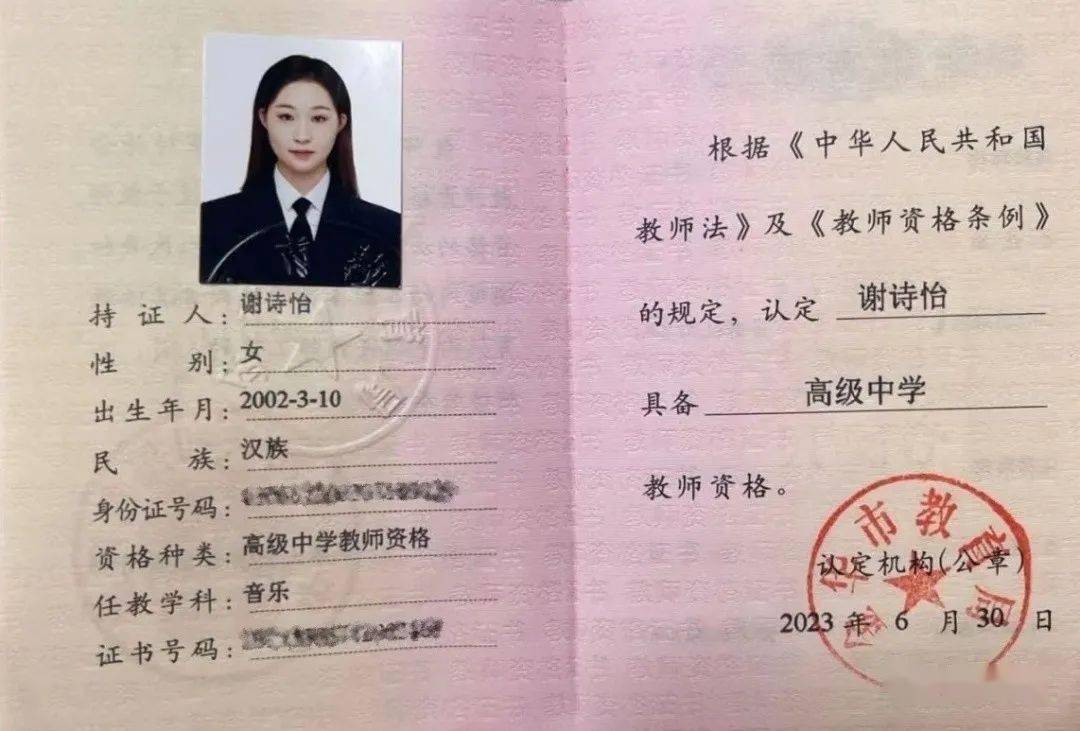 持证人：谢诗怡
性别：女
出生年月：2002-3-10
民族：汉族
身份证号码：
资格种类：高级中学教师资格
任教学科：音乐
证书号码：
根据《中华人民共和国
教师法》及《教师资格条例》
的规定，认定 谢诗怡
具备 高级中学
教师资格。
市教育局
认定机构（公章）
2023 年 6 月 30 日